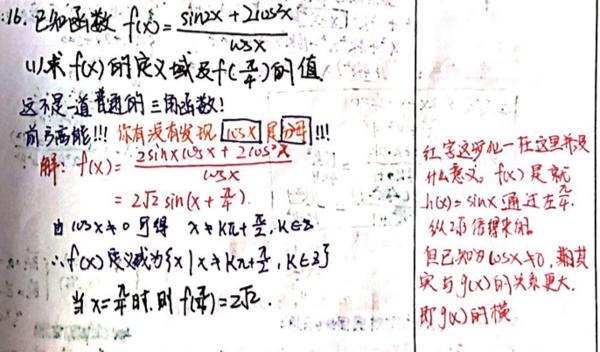 16. 已知函数 f(x) = (sin2x + 2cos²x) / cosx
(1) 求 f(x) 的定义域及 f(π/4) 的值
这不是一道普通的三角函数!
前方高能!!! 你有没有发现 cosx 是分母 !!!
解: f(x) = (2sinxcosx + 2cos²x) / cosx
= 2√2 sin(x + π/4).
由 cosx ≠ 0 可得 x ≠ kπ + π/2, k∈Z
∴ f(x) 定义域为 {x | x ≠ kπ + π/2, k∈Z}
当 x = π/4 时, 则 f(π/4) = 2√2.
红字这
一 在这里并没
什么意义。f(x) 是就
h(x) = sinx 通过左 π/4.
纵 2√2 倍得来的.
但已知的 cosx ≠ 0,
其
实与 g(x) 的关系更大.
即 g(x) 的横